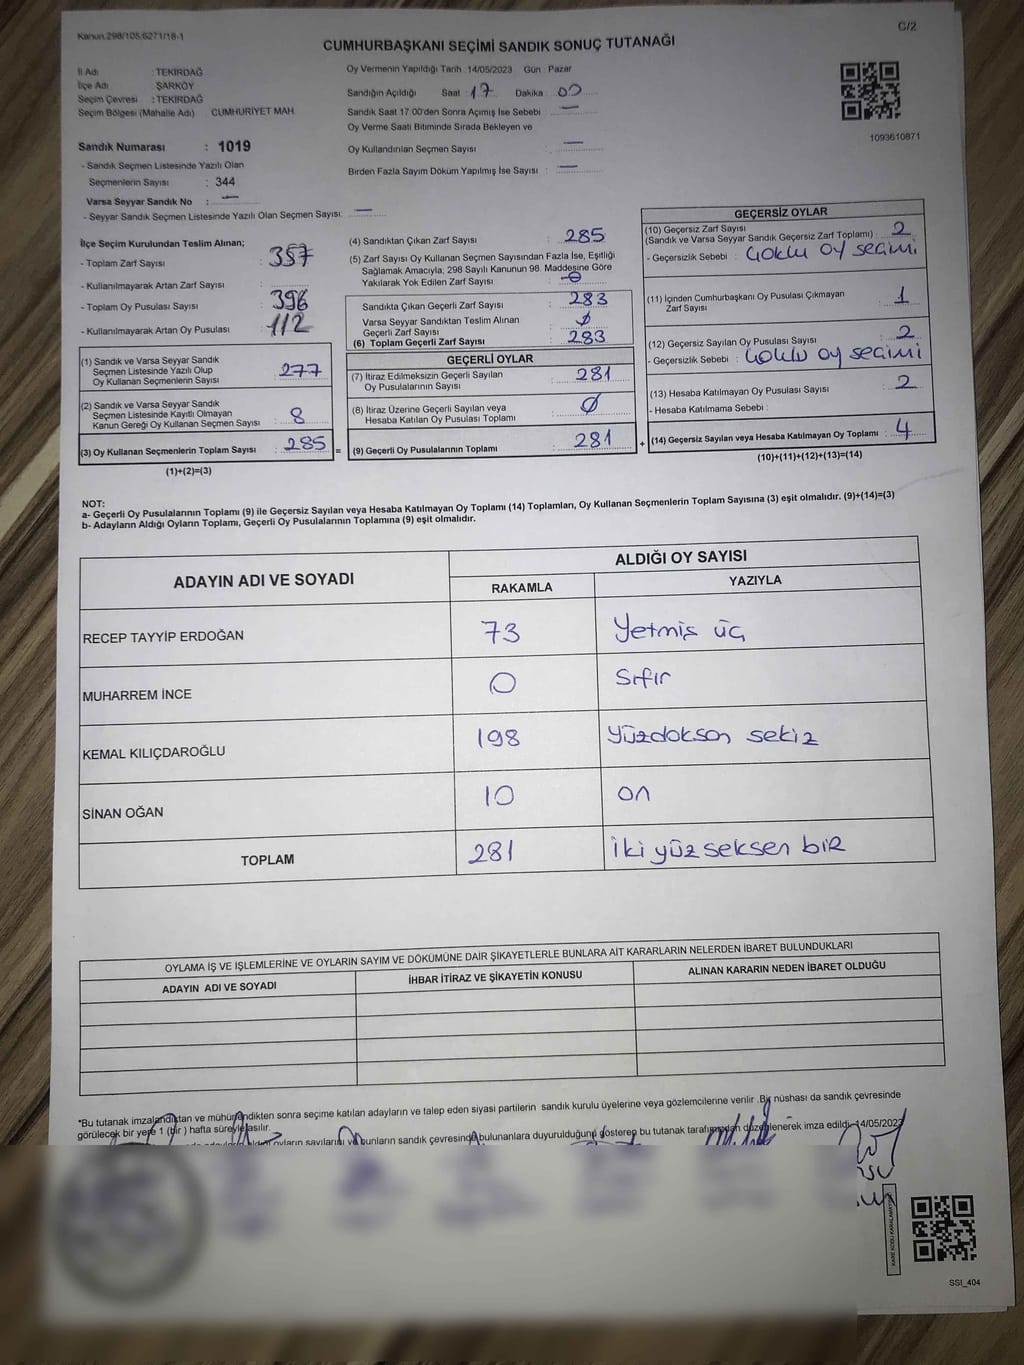 Kanun.298/105,6271/18-1
C/2
CUMHURBAŞKANI SEÇİMİ SANDIK SONUÇ TUTANAĞI
İl Adı : TEKİRDAĞ
İlçe Adı : ŞARKÖY
Seçim Çevresi : TEKİRDAĞ
Seçim Bölgesi (Mahalle Adı) CUMHURİYET MAH.
Sandık Numarası : 1019
- Sandık Seçmen Listesinde Yazılı Olan
Seçmenlerin Sayısı : 344
Varsa Seyyar Sandık No : —
- Seyyar Sandık Seçmen Listesinde Yazılı Olan Seçmen Sayısı: —
Oy Vermenin Yapıldığı Tarih : 14/05/2023 Gün : Pazar
Sandığın Açıldığı Saat : 17 Dakika : 00
Sandık Saat 17:00'den Sonra Açımış İse Sebebi : —
Oy Verme Saati Bitiminde Sırada Bekleyen ve
Oy Kullandırılan Seçmen Sayısı : —
Birden Fazla Sayım Döküm Yapılmış İse Sayısı : —
1093610871
İlçe Seçim Kurulundan Teslim Alınan;
- Toplam Zarf Sayısı : 357
- Kullanılmayarak Artan Zarf Sayısı :
- Toplam Oy Pusulası Sayısı : 396
- Kullanılmayarak Artan Oy Pusulası : 112
(1) Sandık ve Varsa Seyyar Sandık
Seçmen Listesinde Yazılı Olup
Oy Kullanan Seçmenlerin Sayısı : 277
(2) Sandık ve Varsa Seyyar Sandık
Seçmen Listesinde Kayıtlı Olmayan
Kanun Gereği Oy Kullanan Seçmen Sayısı : 8
(3) Oy Kullanan Seçmenlerin Toplam Sayısı : 285 =
(1)+(2)=(3)
(4) Sandıktan Çıkan Zarf Sayısı : 285
(5) Zarf Sayısı Oy Kullanan Seçmen Sayısından Fazla İse, Eşitliği
Sağlamak Amacıyla; 298 Sayılı Kanunun 98. Maddesine Göre
Yakılarak Yok Edilen Zarf Sayısı : 0
Sandıkta Çıkan Geçerli Zarf Sayısı : 283
Varsa Seyyar Sandıktan Teslim Alınan
Geçerli Zarf Sayısı : Ø
(6) Toplam Geçerli Zarf Sayısı : 283
GEÇERLİ OYLAR
(7) İtiraz Edilmeksizin Geçerli Sayılan
Oy Pusulalarının Sayısı : 281
(8) İtiraz Üzerine Geçerli Sayılan veya
Hesaba Katılan Oy Pusulası Toplamı : Ø
(9) Geçerli Oy Pusulalarının Toplamı : 281 +
GEÇERSİZ OYLAR
(10) Geçersiz Zarf Sayısı
(Sandık ve Varsa Seyyar Sandık Geçersiz Zarf Toplamı) : 2
- Geçersizlik Sebebi : Çoklu oy seçimi
(11) İçinden Cumhurbaşkanı Oy Pusulası Çıkmayan
Zarf Sayısı : 1
(12) Geçersiz Sayılan Oy Pusulası Sayısı : 2
- Geçersizlik Sebebi : Çoklu oy seçimi
(13) Hesaba Katılmayan Oy Pusulası Sayısı : 2
- Hesaba Katılmama Sebebi :
(14) Geçersiz Sayılan veya Hesaba Katılmayan Oy Toplamı : 4
(10)+(11)+(12)+(13)=(14)
NOT:
a- Geçerli Oy Pusulalarının Toplamı (9) ile Geçersiz Sayılan veya Hesaba Katılmayan Oy Toplamı (14) Toplamları, Oy Kullanan Seçmenlerin Toplam Sayısına (3) eşit olmalıdır. (9)+(14)=(3)
b- Adayların Aldığı Oyların Toplamı, Geçerli Oy Pusulalarının Toplamına (9) eşit olmalıdır.
ADAYIN ADI VE SOYADI ALDIĞI OY SAYISI
RAKAMLA YAZIYLA
RECEP TAYYİP ERDOĞAN 73 Yetmiş üç
MUHARREM İNCE 0 Sıfır
KEMAL KILIÇDAROĞLU 198 Yüzdoksan sekiz
SİNAN OĞAN 10 on
TOPLAM 281 İki yüz seksen bir
OYLAMA İŞ VE İŞLEMLERİNE VE OYLARIN SAYIM VE DÖKÜMÜNE DAİR ŞİKAYETLERLE BUNLARA AİT KARARLARIN NELERDEN İBARET BULUNDUKLARI
ADAYIN ADI VE SOYADI İHBAR İTİRAZ VE ŞİKAYETİN KONUSU ALINAN KARARIN NEDEN İBARET OLDUĞU
*Bu tutanak imzalandıktan ve mühürlendikten sonra seçime katılan adayların ve talep eden siyasi partilerin sandık kurulu üyelerine veya gözlemcilerine verilir .Bir nüshası da sandık çevresinde
görülecek bir yere 1 (bir ) hafta süreyle asılır.
oyların sayılarını ve bunların sandık çevresinde bulunanlara duyurulduğunu gösteren bu tutanak tarafımızdan düzenlenerek imza edildi. 14/05/2023
KARE KODU KARALAMAYINIZ
SSI_404